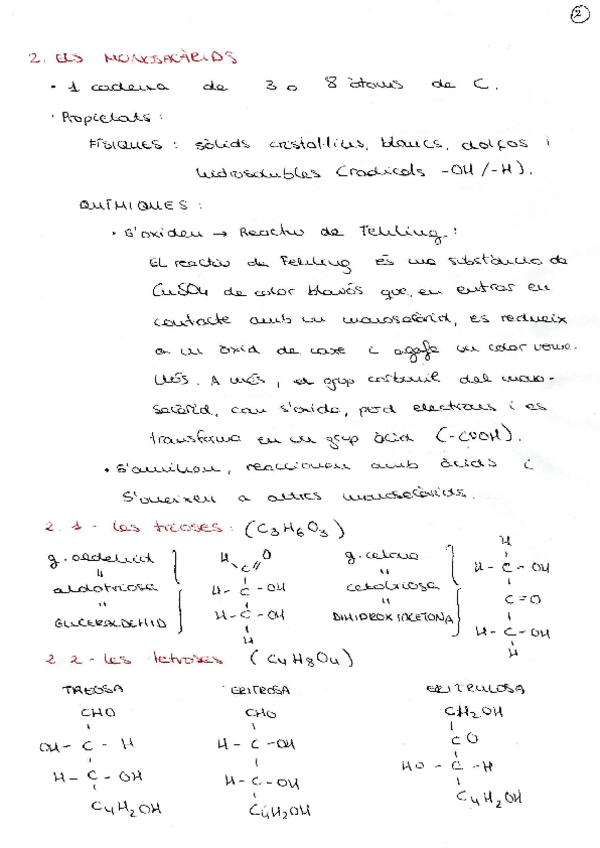 2
2. ELS MONOSACÀRIDS
• 1 cadena de 3 o 8 àtoms de C.
• Propietats:
FÍSIQUES: sòlids cristal·lins, blancs, dolços i
hidrosolubles (radicals -OH/-H).
QUÍMIQUES:
• S'oxiden → Reactiu de Fehling:
El reactiu de Fehling és una substància de
CuSO4 de color blavós que, en entrar en
contacte amb un monosacàrid, es redueix
a un òxid de coure i agafa un color verme-
llós. A més, el grup carbonil del mono-
sacàrid, com s'oxida, perd electrons i es
transforma en un grup àcid (-COOH).
• S'aminen, reaccionen amb àcids i
s'uneixen a altres monosacàrids.
2.1- Les trioses: (C3H6O3)
g. aldehid
"
aldotriosa
"
GLICERALDEHID
H O
C
H - C - OH
H - C - OH
H
g. cetona
"
cetotriosa
"
DIHIDROXIACETONA
H
H - C - OH
C = O
H - C - OH
H
2.2- Les tetroses (C4H8O4)
TREOSA
CHO
OH - C - H
H - C - OH
C4H2OH
ERITROSA
CHO
H - C - OH
H - C - OH
C4H2OH
ERITRULOSA
CH2OH
CO
HO - C - H
C4H2OH